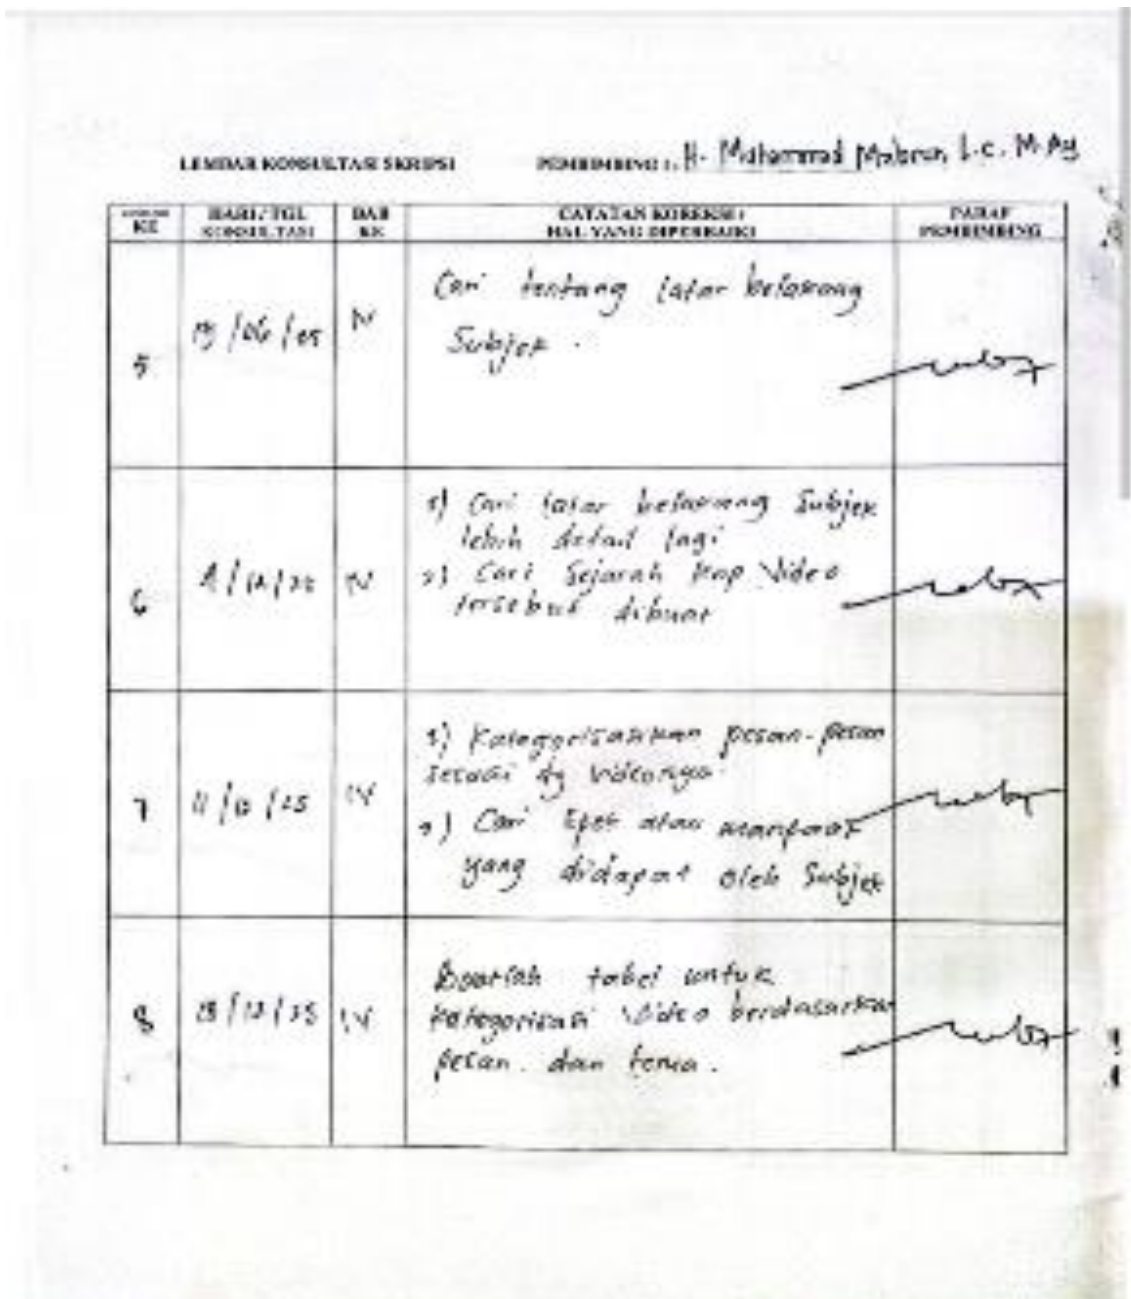 LEMBAR KONSULTASI SKRIPSI PEMBIMBING 1. H. Muhammad Mabrur, L.c. M.Ag
KE HARI / TGL KONSULTASI BAB KE CATATAN KOREKSI / HAL YANG DIPERBAIKI PARAF PEMBIMBING
5 IV Cari tentang latar belakang
Subjek.
6 IV 1) Cari latar belakang Subjek
lebih detail lagi
2) Cari Sejarah Video
tersebut dibuat
7 IV 1) Kategorisasikan pesan-pesan
sesuai dg videonya.
2) Cari Efek atau manfaat
yang didapat oleh Subjek
8 IV Buatlah tabel untuk
kategorisasi Video berdasarkan
pesan. dan tema.